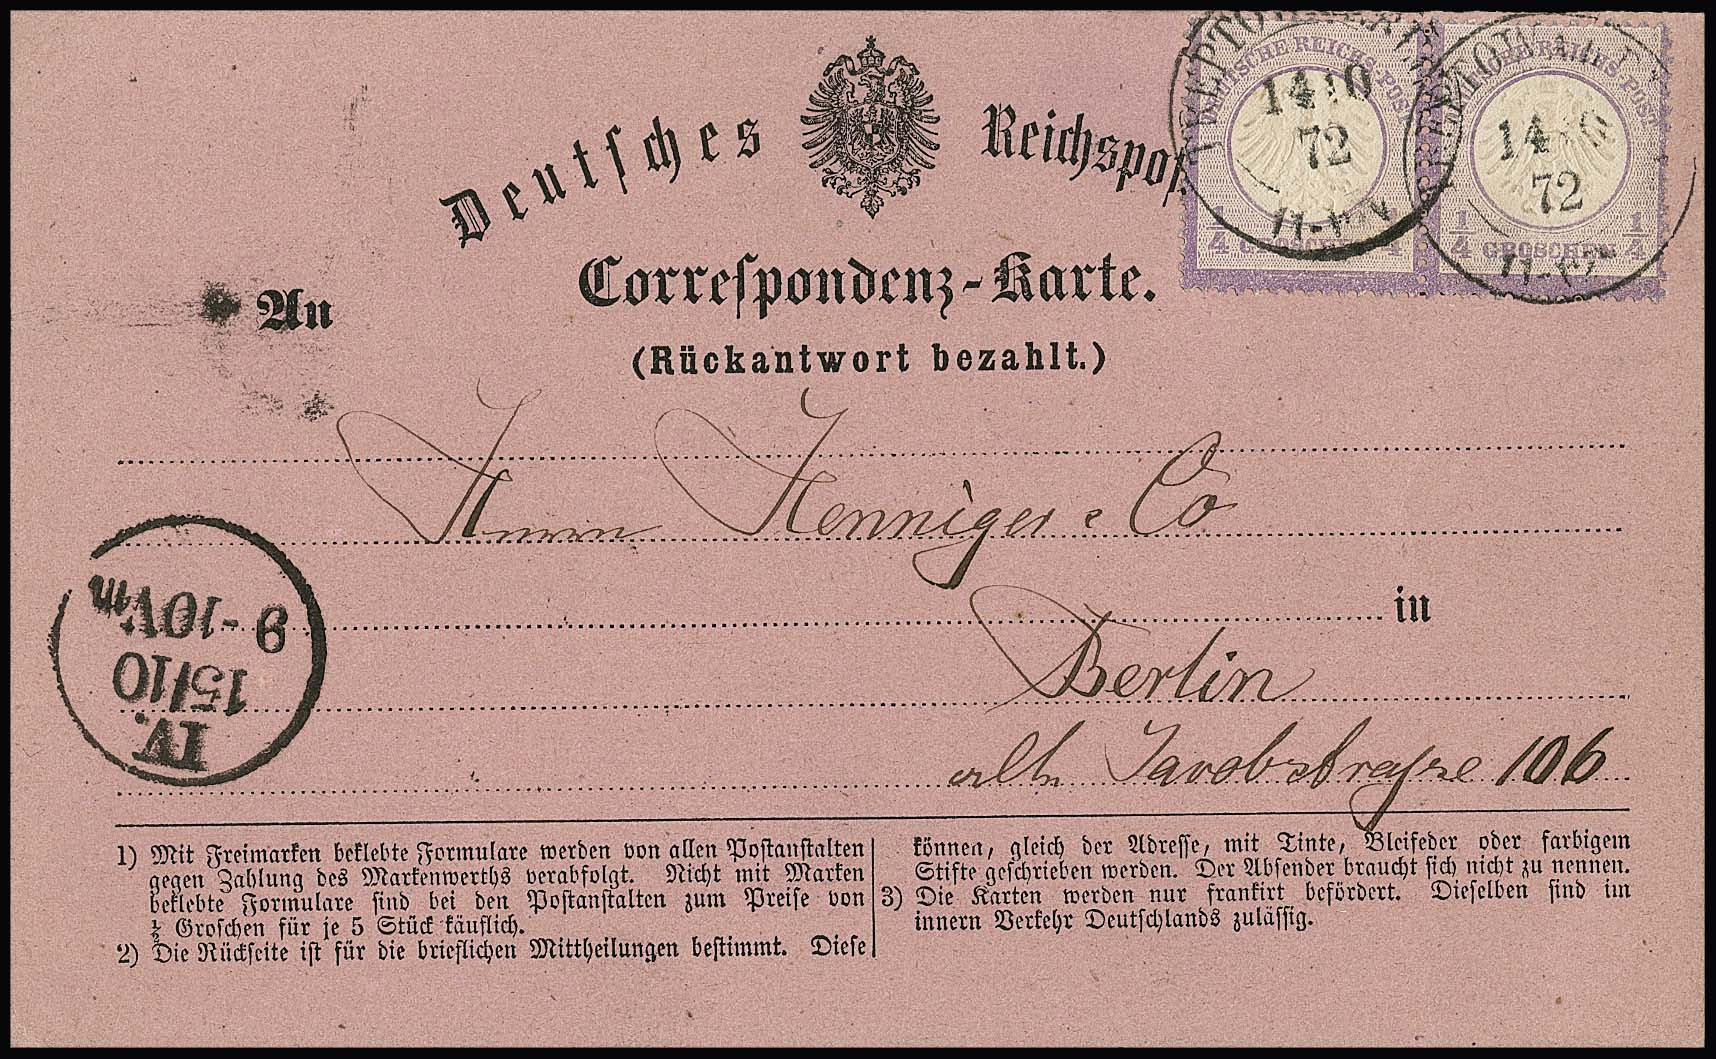 Deutsches Reichspost
DEUTSCHE REICHS-POST
14 10
72
1/4 GROSCHEN 1/4
14 10
72
1/4 GROSCHEN 1/4
Correspondenz-Karte.
(Rückantwort bezahlt.)
An
Herrn Henniger & Co
in
Berlin
alte Jacobstraße 106
IV.
15/10
9-10Vm
1) Mit Freimarken beklebte Formulare werden von allen Postanstalten
gegen Zahlung des Markenwerths verabfolgt. Nicht mit Marken
beklebte Formulare sind bei den Postanstalten zum Preise von
½ Groschen für je 5 Stück käuflich.
2) Die Rückseite ist für die brieflichen Mittheilungen bestimmt. Diese
können, gleich der Adresse, mit Tinte, Bleifeder oder farbigem
Stifte geschrieben werden. Der Absender braucht sich nicht zu nennen.
3) Die Karten werden nur frankirt befördert. Dieselben sind im
innern Verkehr Deutschlands zulässig.